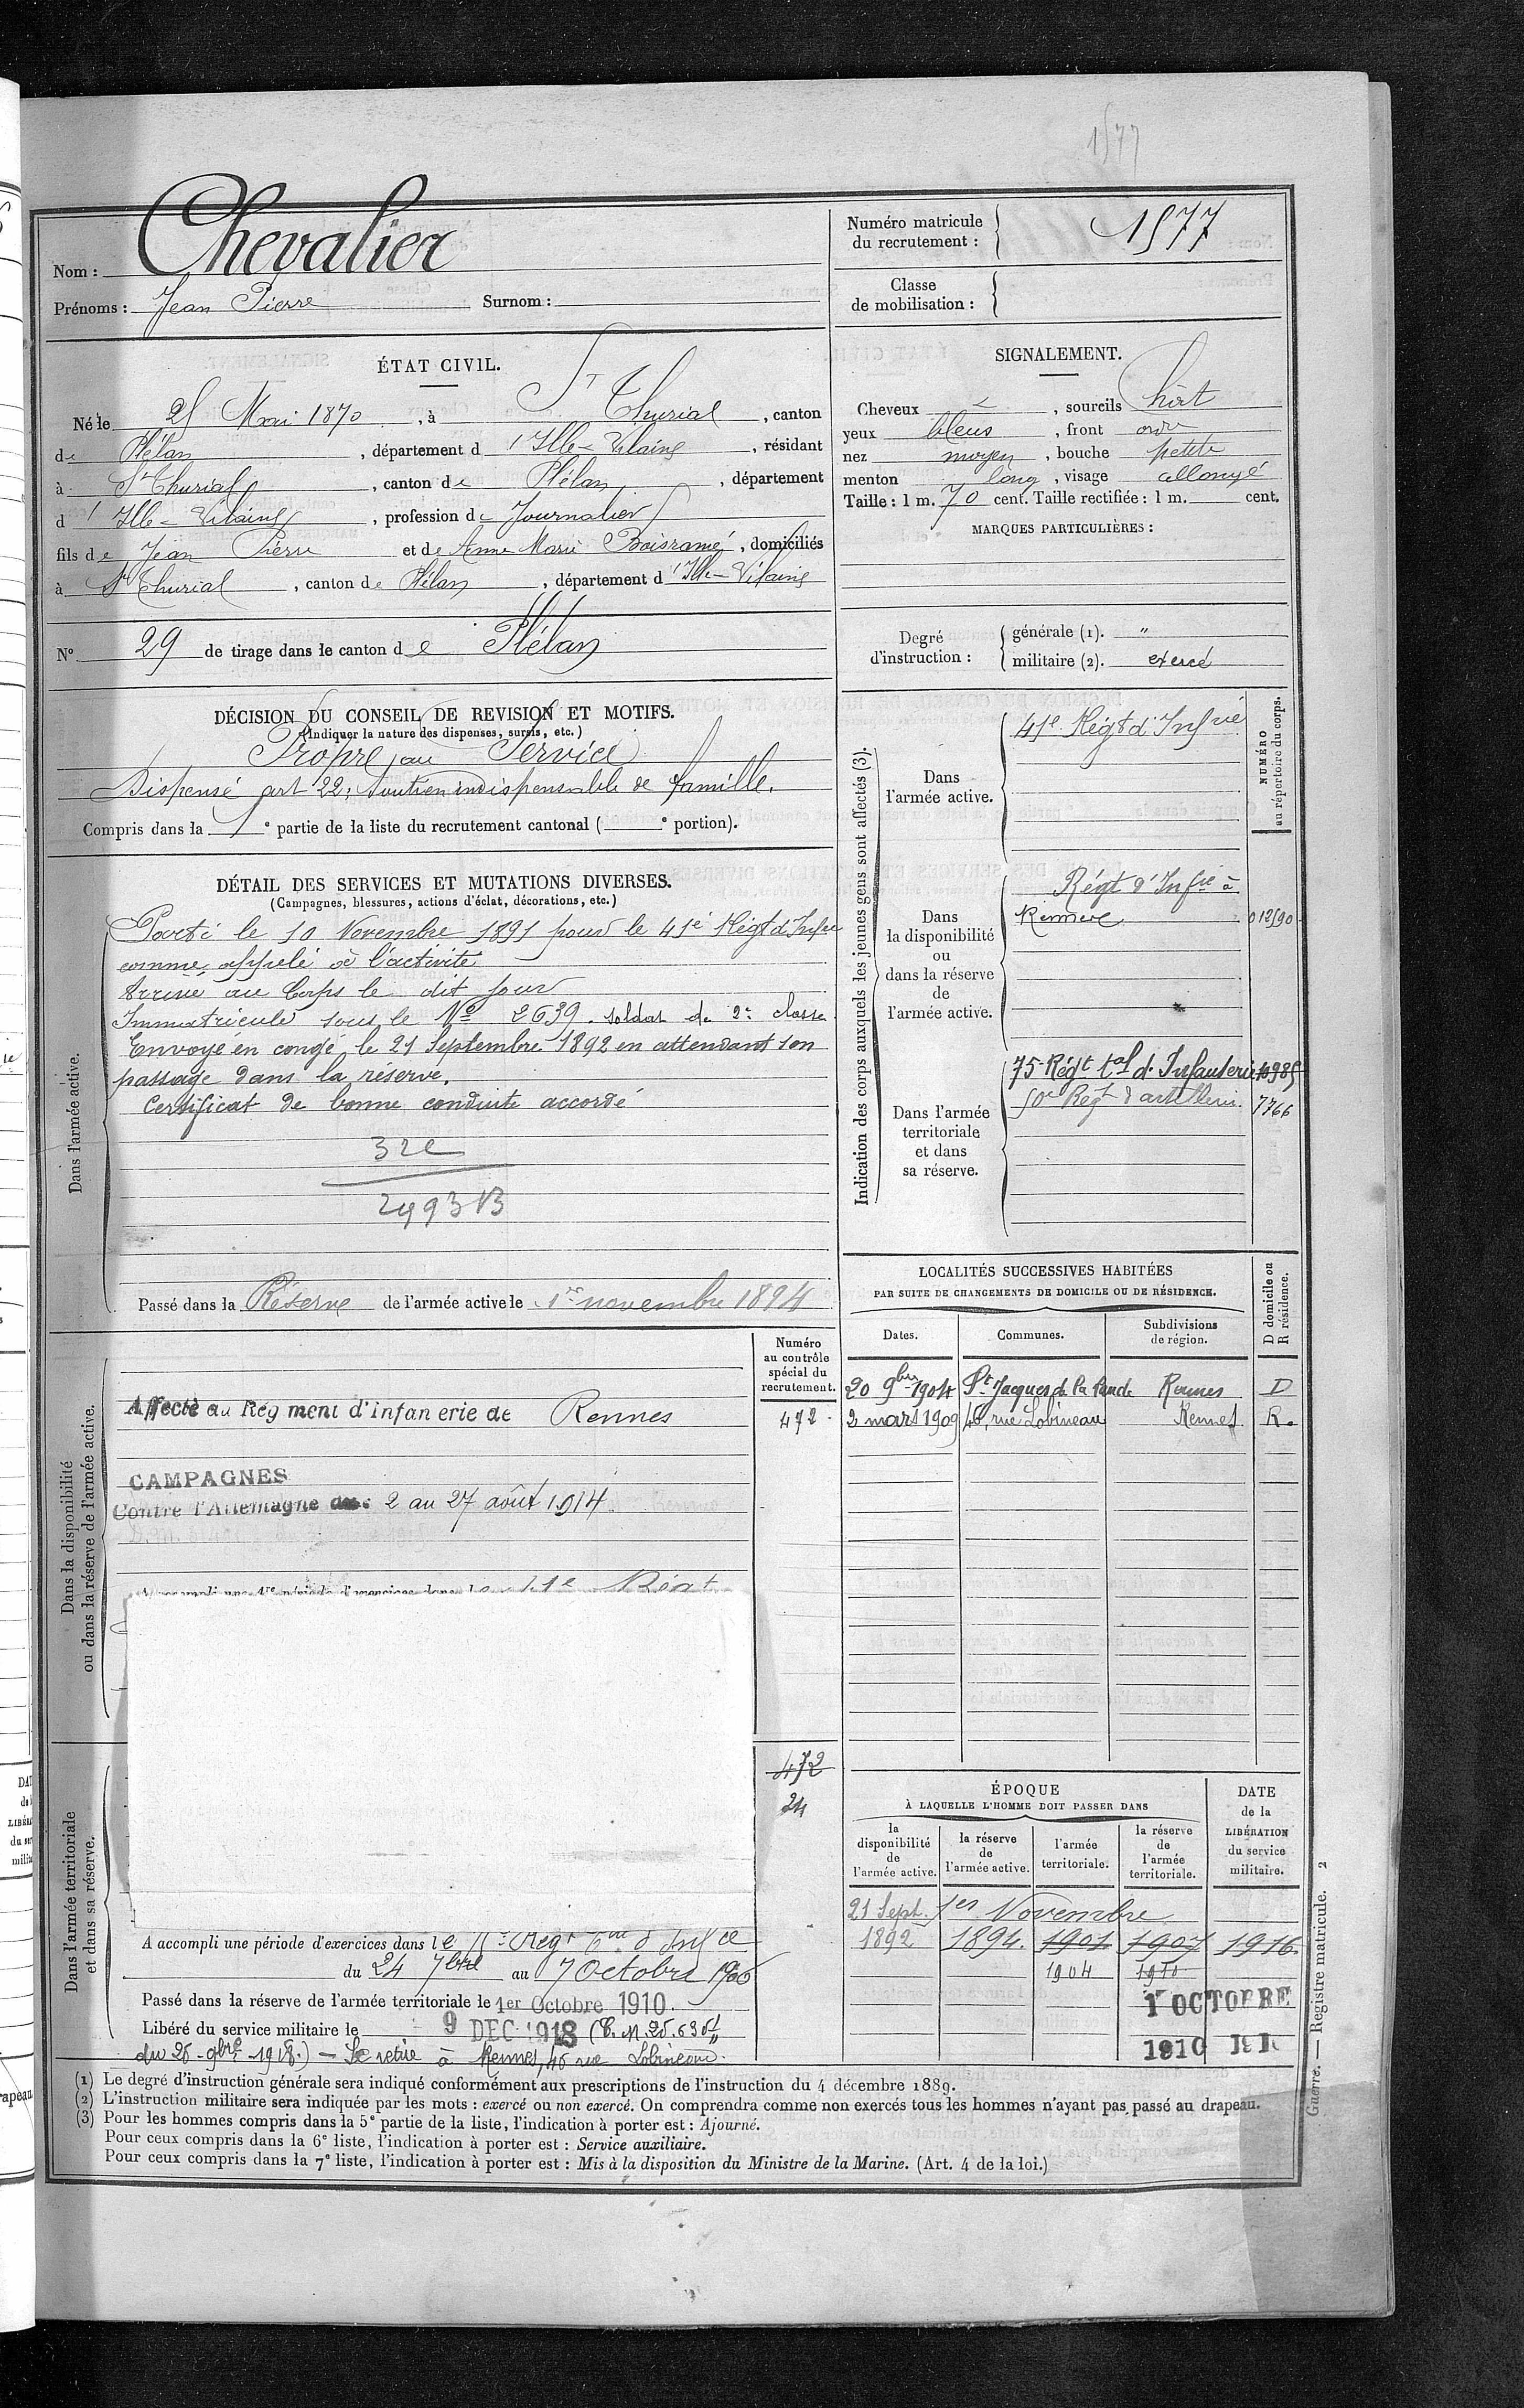 1577
Nom : Chevalier
Prénoms : Jean Pierre Surnom :
Numéro matricule du recrutement : 1577
Classe de mobilisation :
ÉTAT CIVIL.
Né le 25 Mai 1870, à St Thurial, canton
de Plélan, département d'Ille-Vilaine, résidant
à St Thurial, canton de Plélan, département
d'Ille-Vilaine, profession de Journalier
fils de Jean Pierre et de Anne Marie Boisramé, domiciliés
à St Thurial, canton de Plélan, département d'Ille-Vilaine
N° 29 de tirage dans le canton de Plélan
SIGNALEMENT.
Cheveux , sourcils chât
yeux bleus, front ordre
nez moyen, bouche petite
menton long, visage allongé
Taille : 1 m. 70 cent. Taille rectifiée : 1 m. cent.
MARQUES PARTICULIÈRES :
Degré d'instruction :
générale (1). "
militaire (2). exercé
DÉCISION DU CONSEIL DE REVISION ET MOTIFS.
(Indiquer la nature des dispenses, sursis, etc.)
Propre au Service
Dispensé art 22; Soutien indispensable de famille.
Compris dans la 1e partie de la liste du recrutement cantonal ( e portion).
DÉTAIL DES SERVICES ET MUTATIONS DIVERSES.
(Campagnes, blessures, actions d'éclat, décorations, etc.)
Dans l'armée active.
Porté le 10 Novembre 1891 pour le 41e Régt d'Infie
comme appelé à l'activité
Arrivé au Corps le dit jour
Immatriculé sous le No 2639. soldat de 2e classe
Envoyé en congé le 21 Septembre 1892 en attendant son
passage dans la réserve.
Certificat de bonne conduite accordé
32e
2493 B
Passé dans la Réserve de l'armée active le 1er novembre 1894
Indication des corps auxquels les jeunes gens sont affectés (3).
NUMÉRO au répertoire du corps.
Dans l'armée active.
41e Régt d'Infie
Dans la disponibilité ou dans la réserve de l'armée active.
Régt d'Infie à
Rennes 012590
Dans l'armée territoriale et dans sa réserve.
75 Régt tal d'Infanterie 10985
50e Régt d'artillerie 7766
LOCALITÉS SUCCESSIVES HABITÉES
PAR SUITE DE CHANGEMENTS DE DOMICILE OU DE RÉSIDENCE.
Dates. Communes. Subdivisions de région. D domicile ou R résidence.
20 9bre 1904 St Jacques de la lande Rennes D
2 mars 1909 46, rue Lobineau Rennes R.
Dans la disponibilité ou dans la réserve de l'armée active.
Numéro au contrôle spécial du recrutement.
Affecté au Régiment d'infanterie de Rennes 472
CAMPAGNES
Contre l'Allemagne du 2 au 27 août 1914.
A accompli une 1re période d'exercices dans le 41e Régt
472
24
Dans l'armée territoriale et dans sa réserve.
A accompli une période d'exercices dans le Régt d'Infie
du 24 7bre au 7 Octobre 1906
Passé dans la réserve de l'armée territoriale le 1er Octobre 1910.
Libéré du service militaire le 9 DEC 1918 (C.M. 25.630
du 26-9bre-1918.) — Se retire à Rennes, 46 rue Lobineau.
ÉPOQUE
À LAQUELLE L'HOMME DOIT PASSER DANS
la disponibilité de l'armée active. la réserve de l'armée active. l'armée territoriale. la réserve de l'armée territoriale.
DATE de la LIBÉRATION du service militaire.
21 Sept. 1er Novembre
1892 1894. 1901 1907 1916.
1904 1910
1er OCTOBRE
1910
(1) Le degré d'instruction générale sera indiqué conformément aux prescriptions de l'instruction du 4 décembre 1889.
(2) L'instruction militaire sera indiquée par les mots : exercé ou non exercé. On comprendra comme non exercés tous les hommes n'ayant pas passé au drapeau.
(3) Pour les hommes compris dans la 5e partie de la liste, l'indication à porter est : Ajourné.
Pour ceux compris dans la 6e liste, l'indication à porter est : Service auxiliaire.
Pour ceux compris dans la 7e liste, l'indication à porter est : Mis à la disposition du Ministre de la Marine. (Art. 4 de la loi.)
Guerre. — Registre matricule. 2